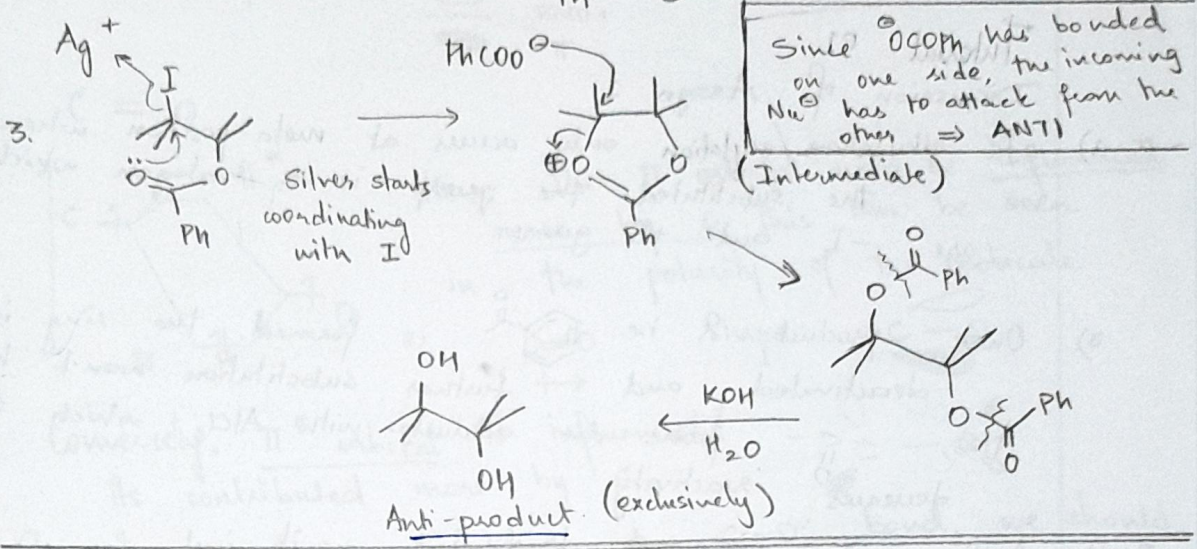 3.
Ag +
I
O
O
Ph
Silver starts
coordinating
with I
PhCOO ⊖
⊕O
O
Ph
(Intermediate)
Since ⊖OCOPh has bonded
on one side, the incoming
Nu⊖ has to attack from the
other ⇒ ANTI
O
Ph
O
O
Ph
O
KOH
H2O
OH
OH
Anti-product (exclusively)